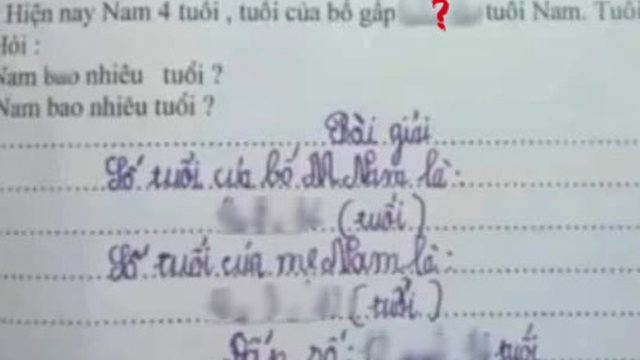 Hiện nay Nam 4 tuổi , tuổi của bố gấp ? tuổi Nam. Tuổi
Hỏi :
Nam bao nhiêu tuổi ?
Nam bao nhiêu tuổi ?
Bài giải
Số tuổi của bố Nam là:
(tuổi)
Số tuổi của mẹ Nam là:
(tuổi)
Đáp số: tuổi